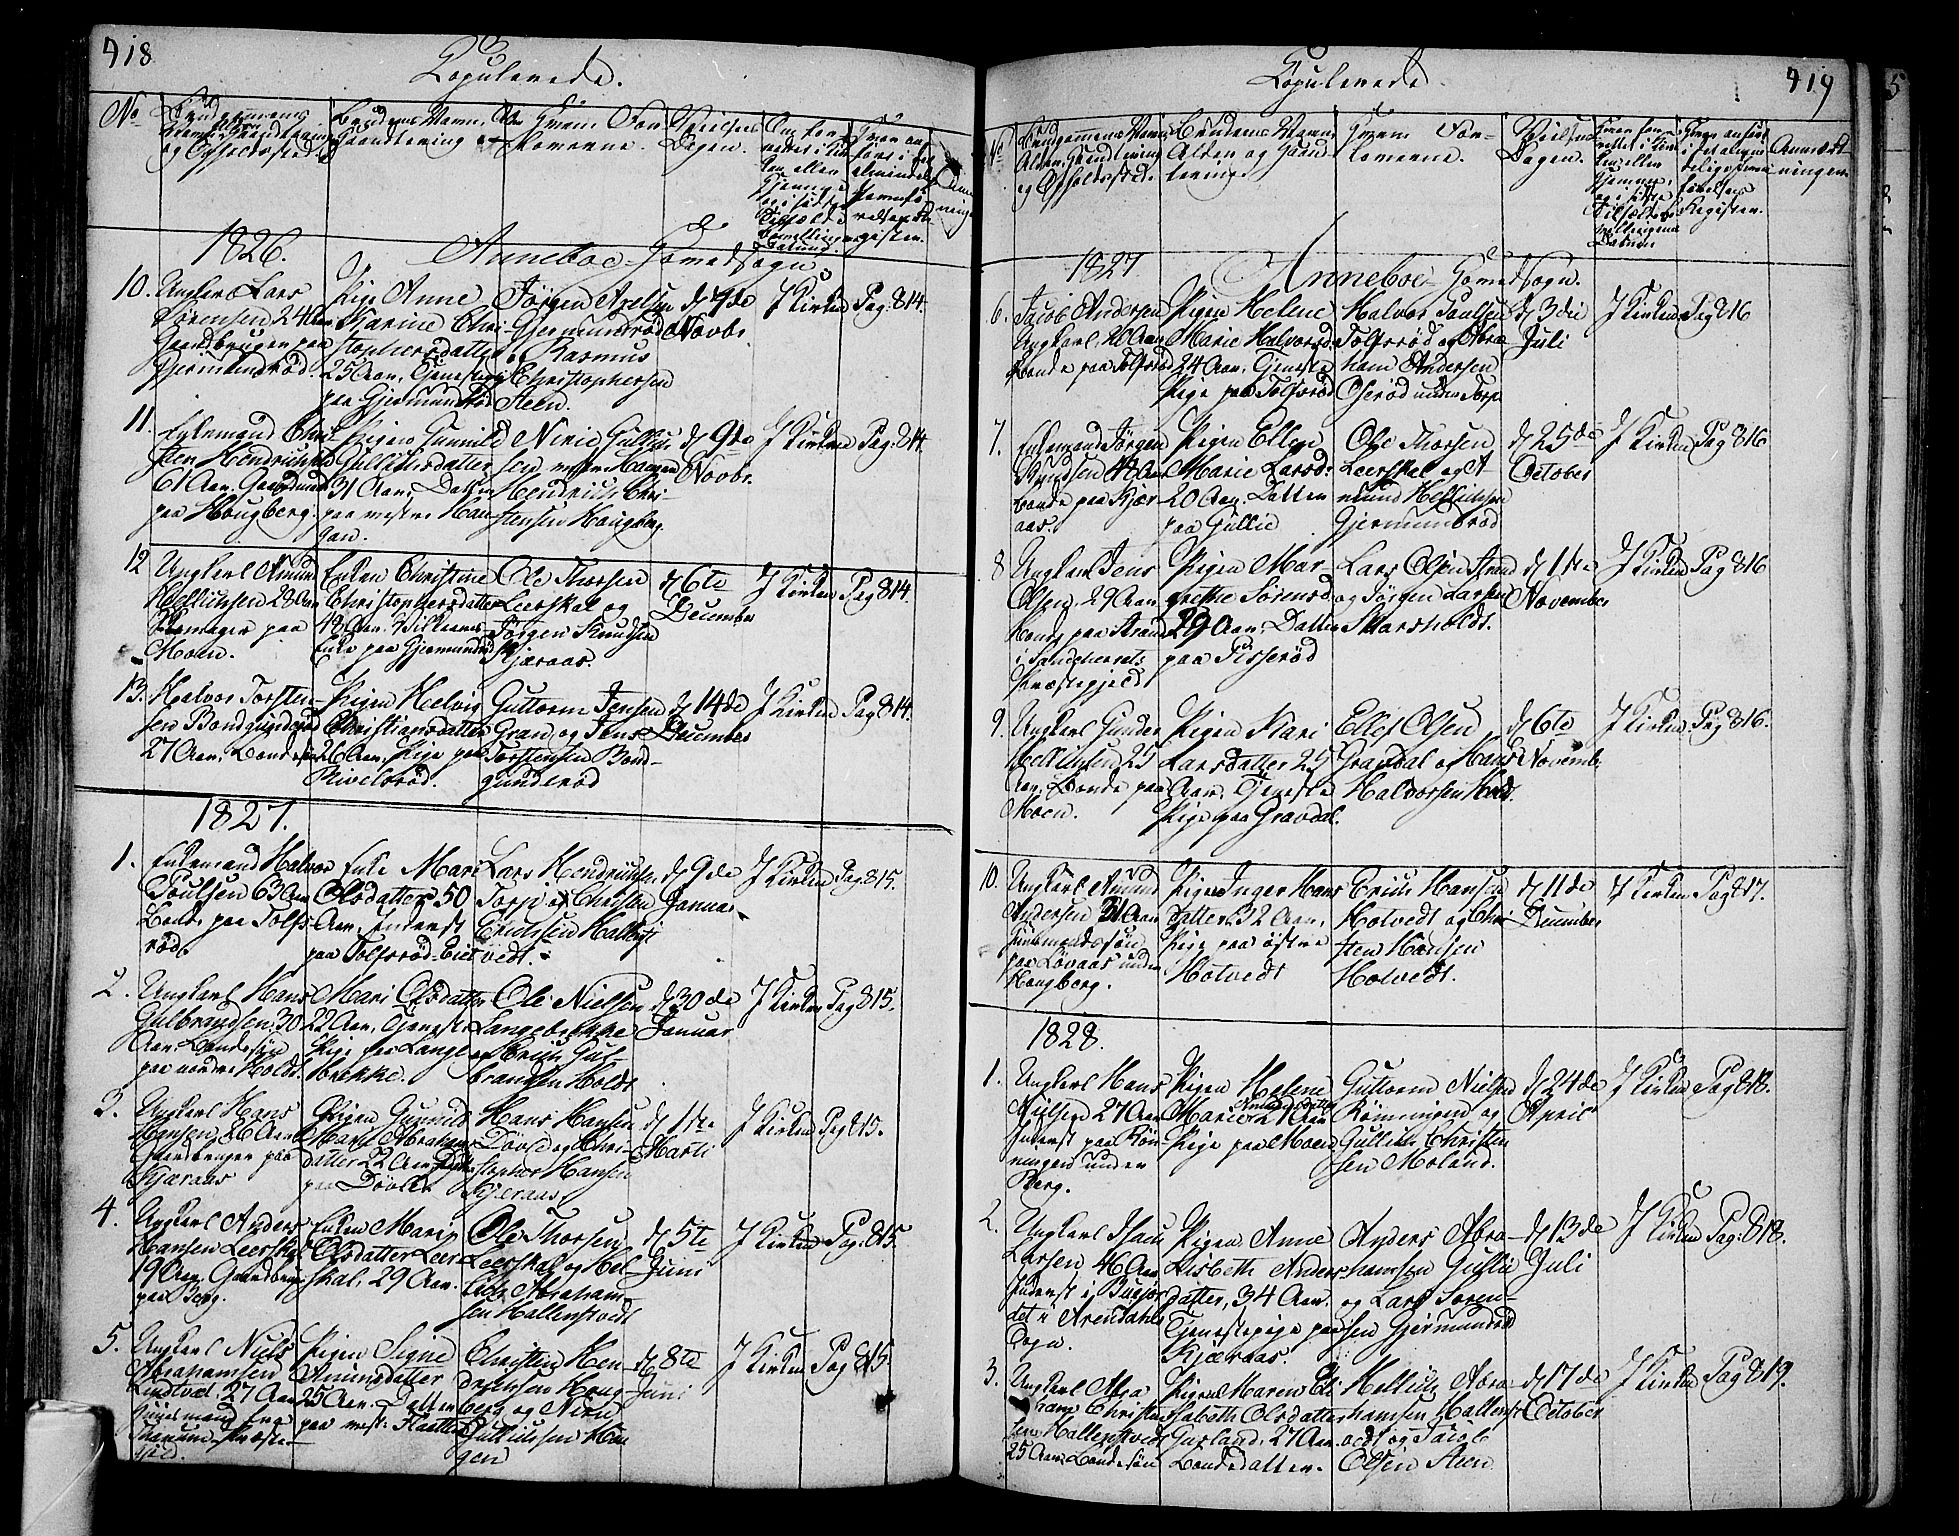 418
Copulerede.
No
Brudgommens
og Opholdssted
Brudens Navn, Alder
Haandtering
Hvem For-
loverne.
Vielses
Dagen.
1826.
Anneboe-Hovedsogn
10. Ungkarl Lars
Sørensen 24 Aar
Gaardbruger paa
Gjermundrød.
Pige Anne
Karine Chri-
stophersdatter
25 Aar, Tjenestepige
paa Gjermundrød
Jørgen Axelsen
Gjermundrød
og Rasmus
Christophersen
Steen.
d. 7de
Novbr.
I Kirken
Pag: 814.
11. Enkemand Chri-
sten Hendrichsen
61 Aar, Gaardmand
paa Hougberg.
Pigen Gunild
Gullichsdatter
31 Aar, Datter
paa vestre Hau-
gan.
Nirie Gullich-
sen vestre Haugen
Hendrich Chri-
stensen Hougberg.
d. 9de
Novbr.
I Kirken
Pag: 814.
12 Ungkarl Amund
Hellichsen 28 Aar
Skomager paa
Moen.
Enken Christine
Christophersdatter
48 Aar,
Enke paa Gjermundrød
Ole Thorsen
Leerskal og
Jørgen Knudsen
Kjæraas.
d. 6te
December
I Kirken
Pag 814.
13. Halvor Torste-
sen Bondgunderød
27 Aar, Bondesøn
Pigen Helvig
Christiansdatter
26 Aar, Pige paa
Rivelsrød.
Guttorm Jensen
Gran og Jens
Torstensen Bond-
gunderød
d. 14de
December
I Kirken
Pag 814.
1827.
1. Enkemand Halvor
Poulsen 63 Aar
Bonde paa Tolfs-
rød,
Enke Mari
Olsdatter 50
Aar, Inderst
paa Tolfsrød-Eie
Lars Hendrichsen
Torp og Christen
Erichsen Hallenst-
vedt.
d. 9de
Januar
I Kirken
Pag 815.
2. Ungkarl Hans
Gulbrandsen 30
Aar. Bondesøn
paa nordre Holdt.
Mari Olsdatter
22 Aar, Tjeneste
Pige paa Lange-
brekke.
Ole Nielsen
Langebrekke
og Erich Gul-
brandsen Holdt
d. 30de
Januar
I Kirken
Pag 815.
3. Ungkarl Hans
Hansen, 26 Aar
Gaardbruger paa
Kjæraas
Pigen Gunild
Marie Abrahams-
datter 22 Aar,
paa Døvle
Hans Hansen
Døvle og Chri-
stopher Hansen
Kjæraas
d. 1te
Marti
I Kirken
Pag 815.
4. Ungkarl Anders
Hansen Leerskal
19 Aar, Gaardbruger
paa Berg.
Enken Mari
Olsdatter Leer-
skal. 29 Aar.
Ole Thorsen
Leerskal og Hel-
lich Abraham-
sen Hallenstvedt
d. 5te
Juni
I Kirken
Pag. 815.
5. Ungkarl Niels
Abrahamsen
Lindtved 27 Aar
Pigen Signe
Amunsdatter
25 Aar, Datter
paa vestre
Christen Hen-
drichsen Houg-
berg og Nirie
Gullichsen Hau-
gen
d. 8te
Juni
I Kirken
Pag 815.
419
Copulerede
No
Brudgommens Navn,
Alder, Haandtering
og Opholdssted.
Brudens Navn,
Alder og Haand-
tering.
Hvem For-
loverne.
Vielses
Dagen.
Anmærk-
ninger.
1827
Anneboe-Hovedsogn.
6. Jacob Andersen
Ungkarl, 20 Aar,
Bonde paa Tolfsrød
Pigen Helene
Marie Halvorsd.
24 Aar, Tjeneste
Pige paa Tolfsrød
Halvor Poulsen
Tolfsrød og Abra-
ham Andersen
Oserød under Torp
d. 3die
Juli
I Kirken
Pag 816
7. Enkemand Jørgen
Knudsen 48 Aar
Bonde paa Kjær-
aas.
Pigen Ellen
Marie Larsd:
20 Aar, Datter
paa Gullie
Ole Thorsen
Leerskal og A-
mund Hellichsen
Gjermundrød
d. 25de
October
I Kirken
Pag 816
8 Ungkarl Jens
Olsen, 29 Aar
Bonde paa Strand
i Sandeherrets
Præstegjeld
Pigen Mar-
grethe Sørensd
29 Aar, Datter
paa Tisserød
Lars Olsen Strand
og Jørgen Larsen
Skarsholdt.
d. 1te
November
I Kirken
Pag 816
9. Ungkarl Gunder
Hellichsen 25
Aar, Bonde paa
Moen.
Pigen Kari
Larsdatter 25
Aar, Tjeneste
Pige paa Gravdal.
Ellef Olsen
Gravdal og Hans
Halvorsen Holdt.
d. 6te
Novemb.
I Kirken
Pag 816.
10. Ungkarl Amund
Andersen 31 Aar
Huusmandssøn
paa Løvaas under
Hougberg.
Pigen Inger Hans
datter 32 Aar,
Pige paa østre
Hotvedt
Erich Hansen
Hotvedt og Chri-
sten Hansen
Hotvedt.
d. 11de
December
I Kirken
Pag 817.
1828.
1. Ungkarl Hans
Nielsen 27 Aar
Inderst paa Røn-
ningen under
Berg.
Pigen Helene
Marie 27 Aar
Pige paa Moen
Guttorm Nielsen
Rønningen og
Gullich Christen
sen Moland.
d. 24de
April
I Kirken
Pag 818.
2. Ungkarl Isach
Larsen 46 Aar
Inderst i
det i Arendahls
Sogn.
Pigen Anne
Lisbeth Anders
datter, 34 Aar.
Tjenestepige paa
Kjæraas.
Anders Abra-
hamsen Gullie
og Lars Søren-
sen Gjermundrød
d. 13de
Juli
I Kirken
Pag: 818.
3. Ungkarl Abra-
ham Christen
sen Hallenstvedt
25 Aar, Bondesøn
Pigen Maren Eli
sabeth Olsdatter
Gusland, 27 Aar.
Bondedatter.
Hellich Abra-
hamsen Hallenst
vedt og Jacob
Olsen Steen
d. 17de
October
I Kirken
Pag 819.